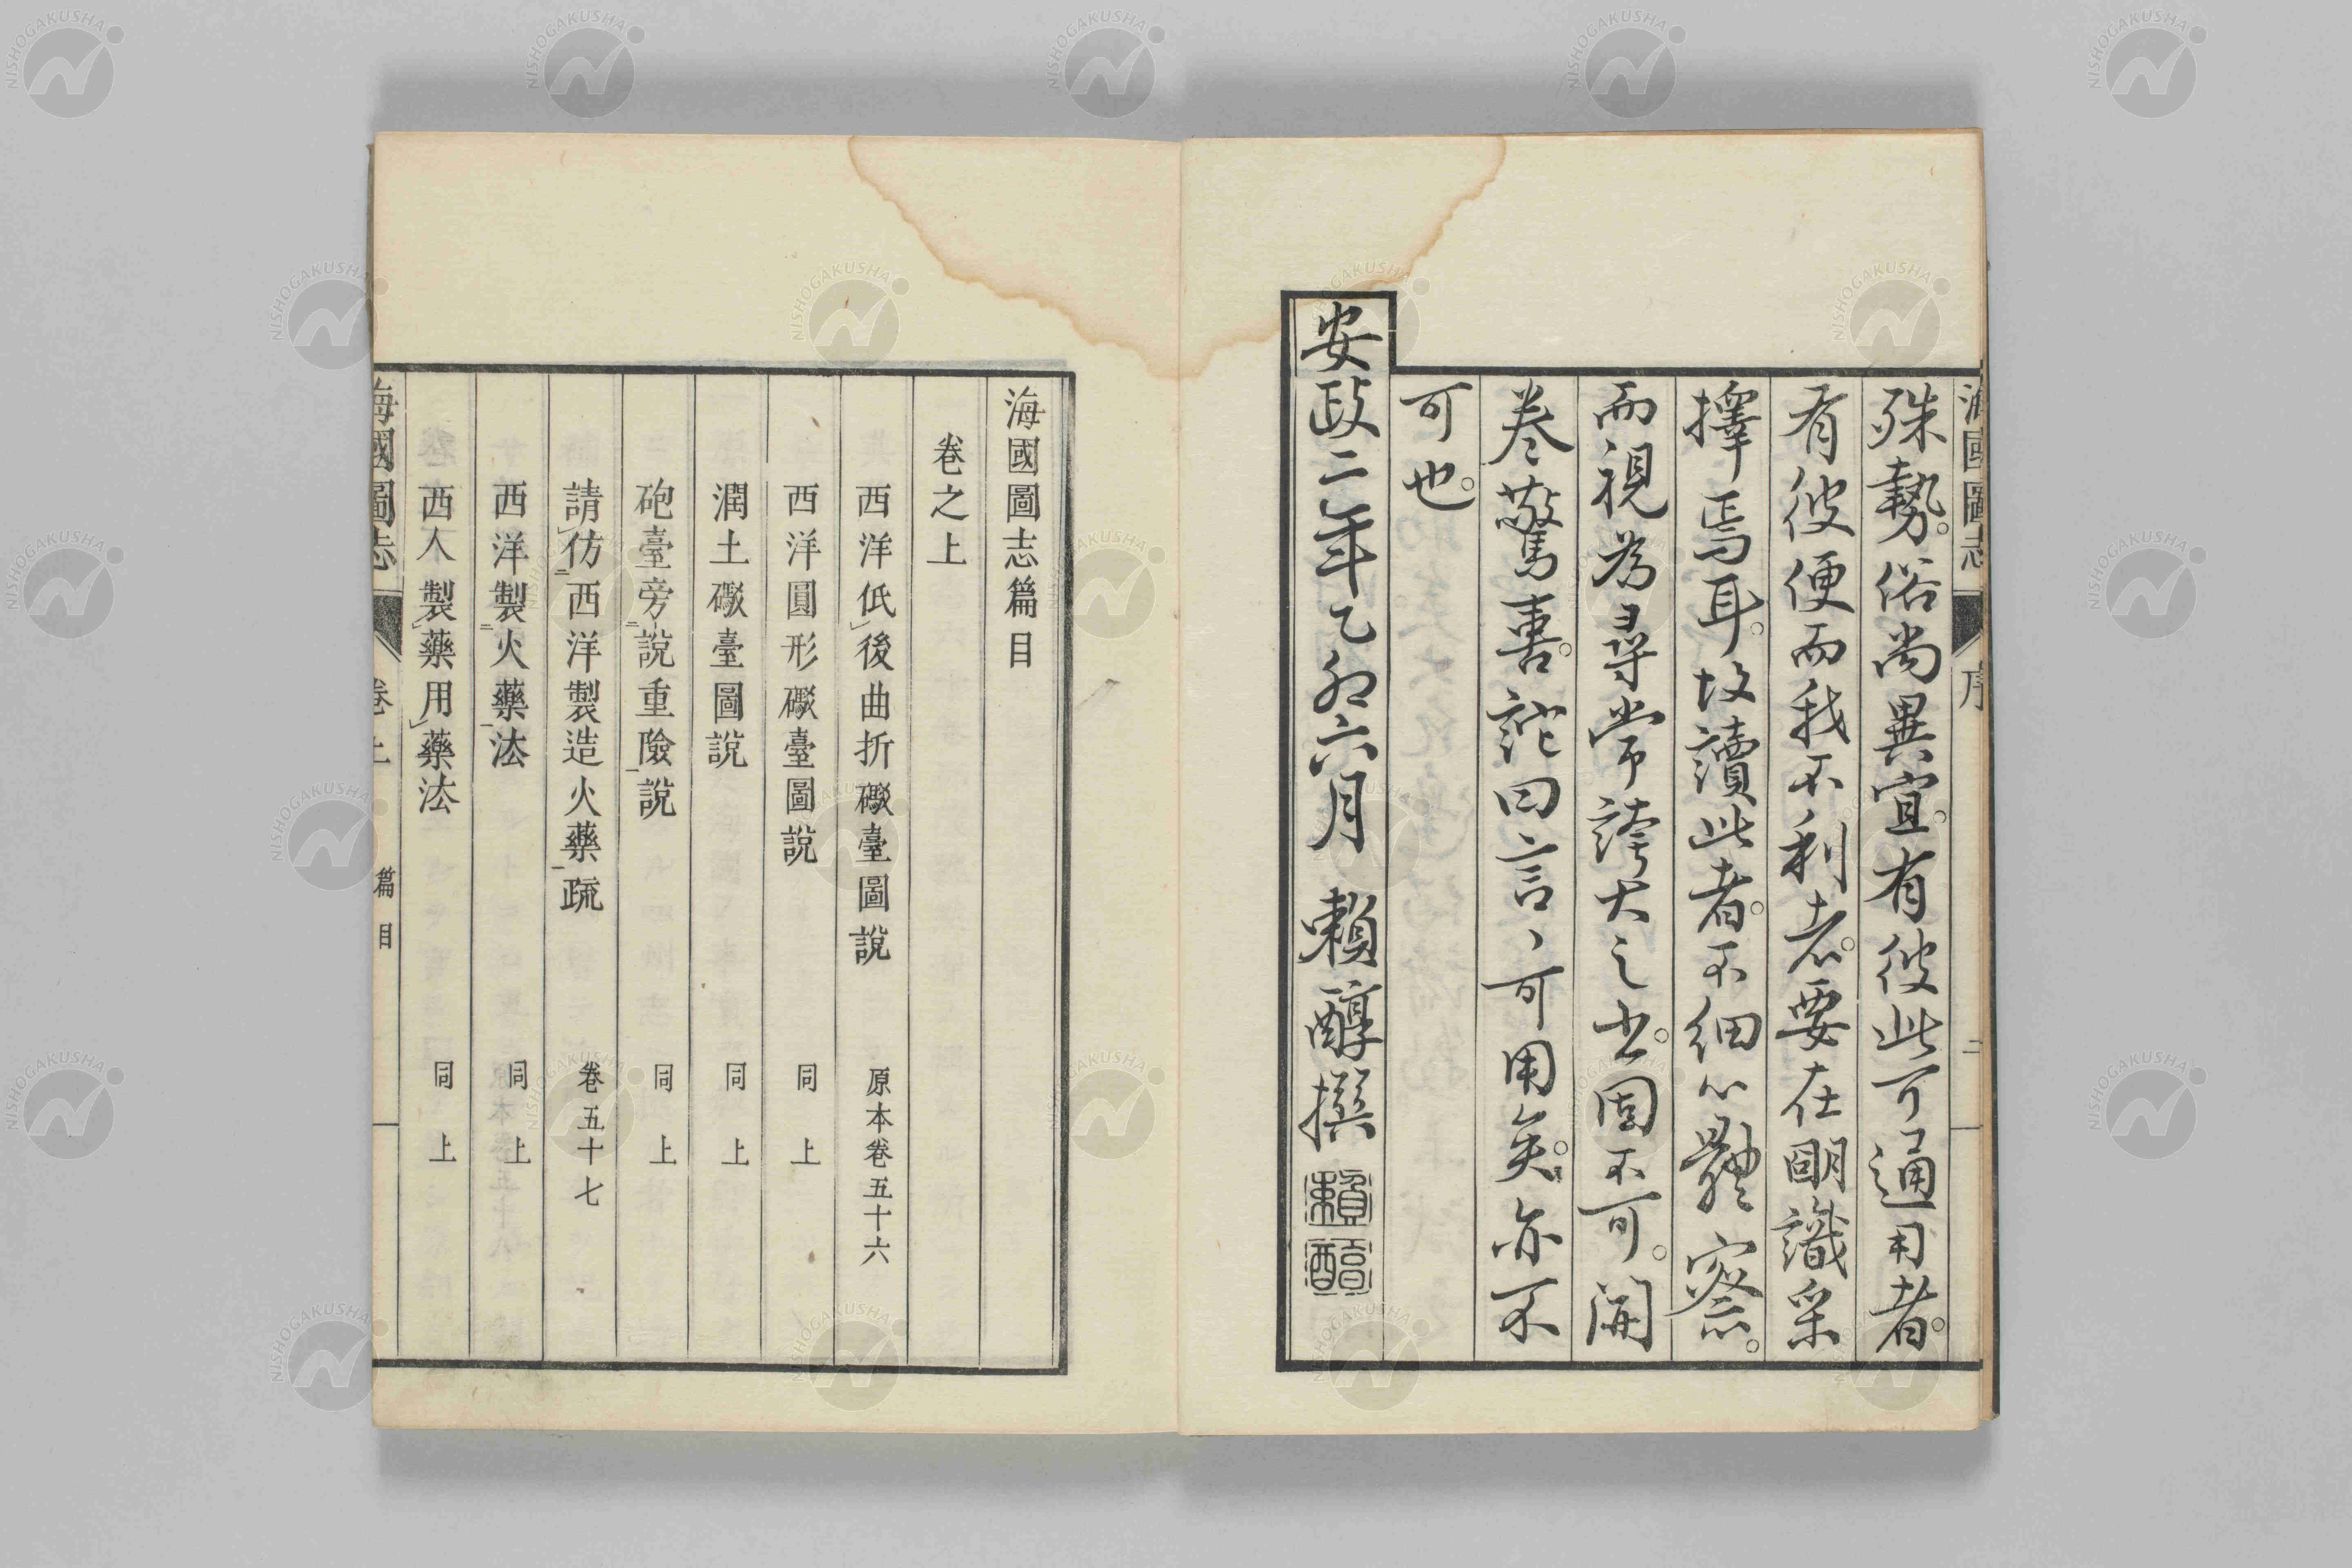 海國圖志 序 二
殊勢。俗尚異宜。有彼此可通用者。
有彼便而我不利者。要在明識采
擇焉耳。故讀此者。不細心體察。
而視為尋常誇大之書。固不可。開
卷驚喜。詫曰言、可用矣。亦不
可也。
安政二年乙卯六月 賴醇撰
賴醇
海國圖志篇目
卷之上
西洋低後曲折礮臺圖說 原本卷五十六
西洋圓形礮臺圖說 同上
潤土礮臺圖說 同上
砲臺旁說重險說 同上
請仿西洋製造火藥疏 卷五十七
西洋製火藥法 同上
西人製藥用藥法 同上
海國圖志 卷上 篇目
NISHOGAKUSHA